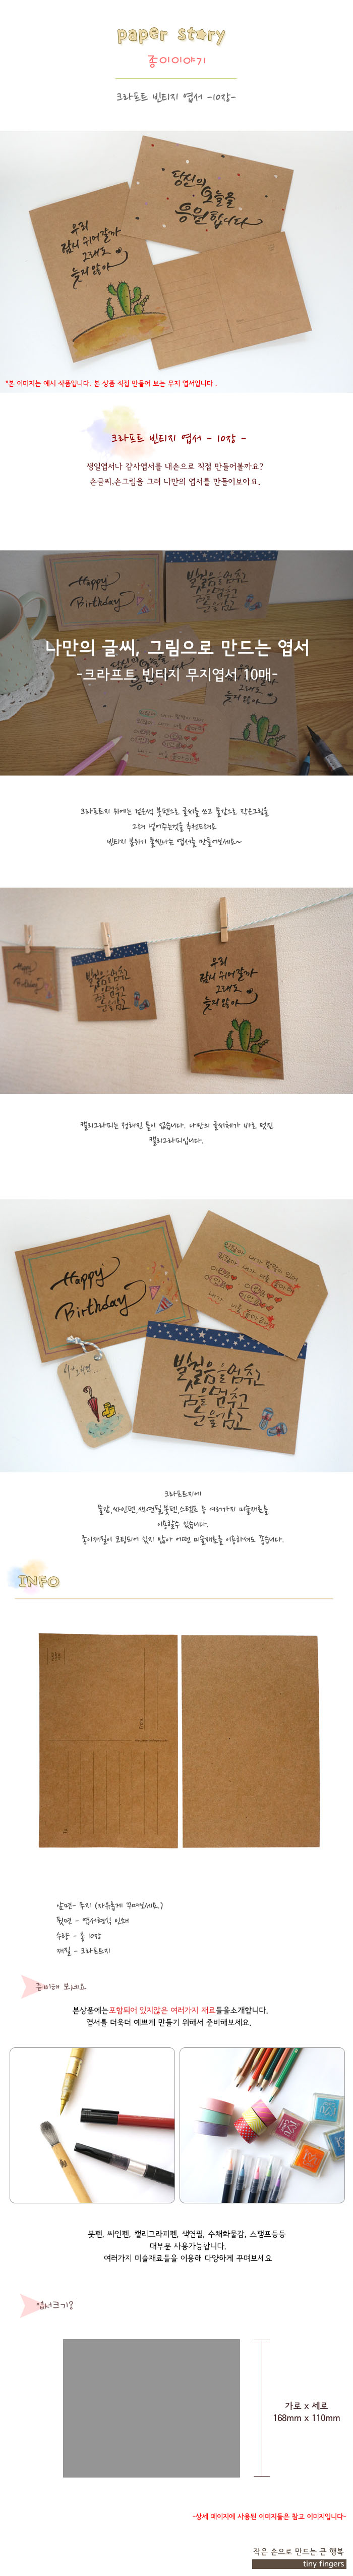 paper story
종이이야기
크라프트 빈티지 엽서 -10장-
당신의
오늘을
응원합니다
우리
잠시 쉬어갈까
그래도
늦지 않아
*본 이미지는 예시 작품입니다. 본 상품 직접 만들어 보는 무지 엽서입니다 .
크라프트 빈티지 엽서 - 10장 -
생일엽서나 감사엽서를 내손으로 직접 만들어볼까요?
손글씨,손그림을 그려 나만의 엽서를 만들어보아요.
Happy
Birthday
발걸음을 멈추고
숨을 멈추고
눈을 감고
나만의 글씨, 그림으로 만드는 엽서
-크라프트 빈티지 무지엽서 10매-
크라프트지 위에는 검은색 붓펜으로 글씨를 쓰고 물감으로 작은그림을
그려 넣어주는것을 추천드려요
빈티지 분위기 물씬나는 엽서를 만들어보세요~
Happy
Birthday
발걸음을 멈추고
숨을 멈추고
눈을 감고
우리
잠시 쉬어갈까
그래도
늦지 않아
캘리그라피는 정해진 틀이 없습니다. 나만의 글씨체가 바로 멋진
캘리그라피입니다.
Happy
Birthday
발걸음을 멈추고
숨을 멈추고
눈을 감고
크라프트지에
물감,싸인펜,색연필,붓펜,스탬프 등 여러가지 미술재료를
이용할수 있습니다.
종이재질이 코팅되어 있지 않아 어떤 미술재료를 이용하셔도 좋습니다.
INFO
앞면- 무지 (자유롭게 꾸며보세요.)
뒷면 - 엽서형식 인쇄
수량 - 총 10장
재질 - 크라프트지
준비해 보세요
본상품에는포함되어 있지않은 여러가지 재료들을소개합니다.
엽서를 더욱더 예쁘게 만들기 위해서 준비해보세요.
붓펜, 싸인펜, 캘리그라피펜, 색연필, 수채화물감, 스탬프등등
대부분 사용가능합니다.
여러가지 미술재료들을 이용해 다양하게 꾸며보세요
엽서크기?
가로 x 세로
168mm x 110mm
-상세 페이지에 사용된 이미지들은 참고 이미지입니다-
작은 손으로 만드는 큰 행복
tiny fingers